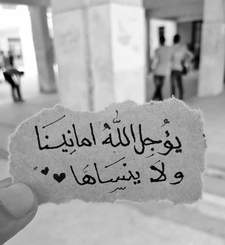 يؤجل اللّٰهُ امانِينَا
ولا ينسَاهَا